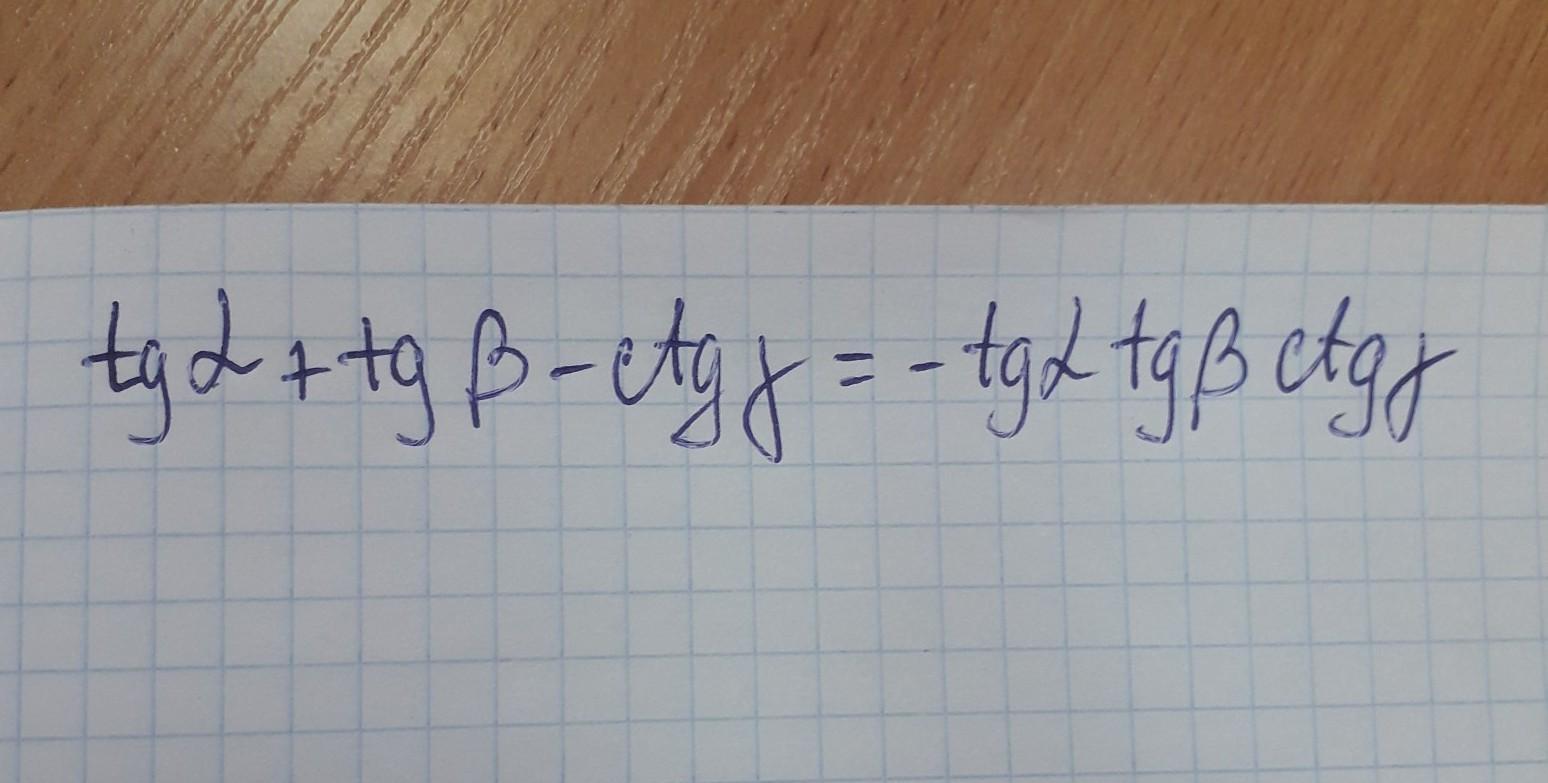 tg α + tg β - ctg γ = - tg α tg β ctg γ